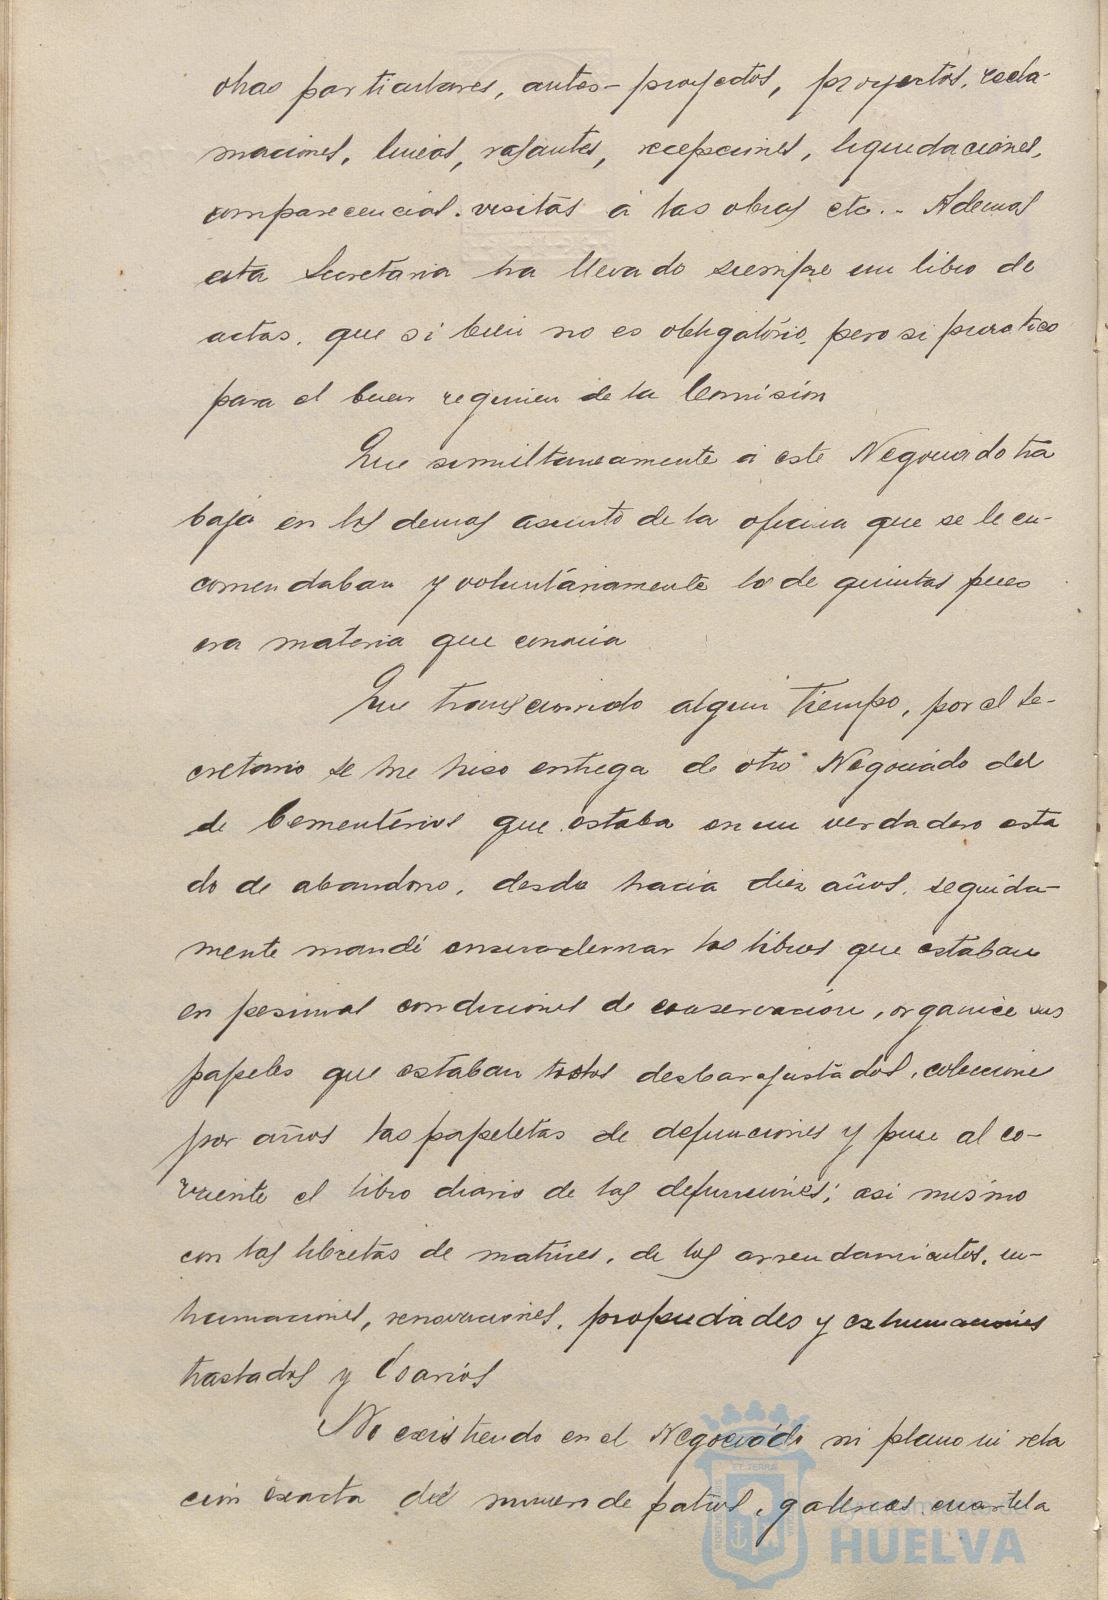 obras particulares, antes-proyectos, proyectos, recla-
maciones, lineas, rasantes, recepciones, liquidaciones,
comparecencias. visitas á las obras etc.. Ademas
esta Secretaria ha llevado siempre un libro de
actas, que si bien no es obligatório, pero si practico
para el buen regimen de la Comisión
Que simultaneamente á este Negociado tra
bajá en los demas asunto de la oficina que se le en-
comendaban y voluntáriamente lo de quintas pues
era materia que conocia
Que transcurrido algun tiempo, por el Se-
cretario se me hiso entrega de otro Negociádo del
de Cementérios que estaba en un verdadero esta
do de abandono, desde hacia diez años, seguida-
mente mandé encuadernar los libros que estaban
en pesimas condiciones de conservación, organice sus
papeles que estaban todos desbarajustádos, coleccione
por años las papeletas de defunciones y puse al co-
rriente el libro diario de las defunciones; asi mismo
con las libretas de matrices, de los arrendamientos, in-
humaciones, renovaciones, propiedades y exhumaciones
traslados y Osarios
No existiendo en el Negociádo ni plano ni rela
ción exacta del numero de patios, galerias, cuartela
Ayuntamiento de
HUELVA